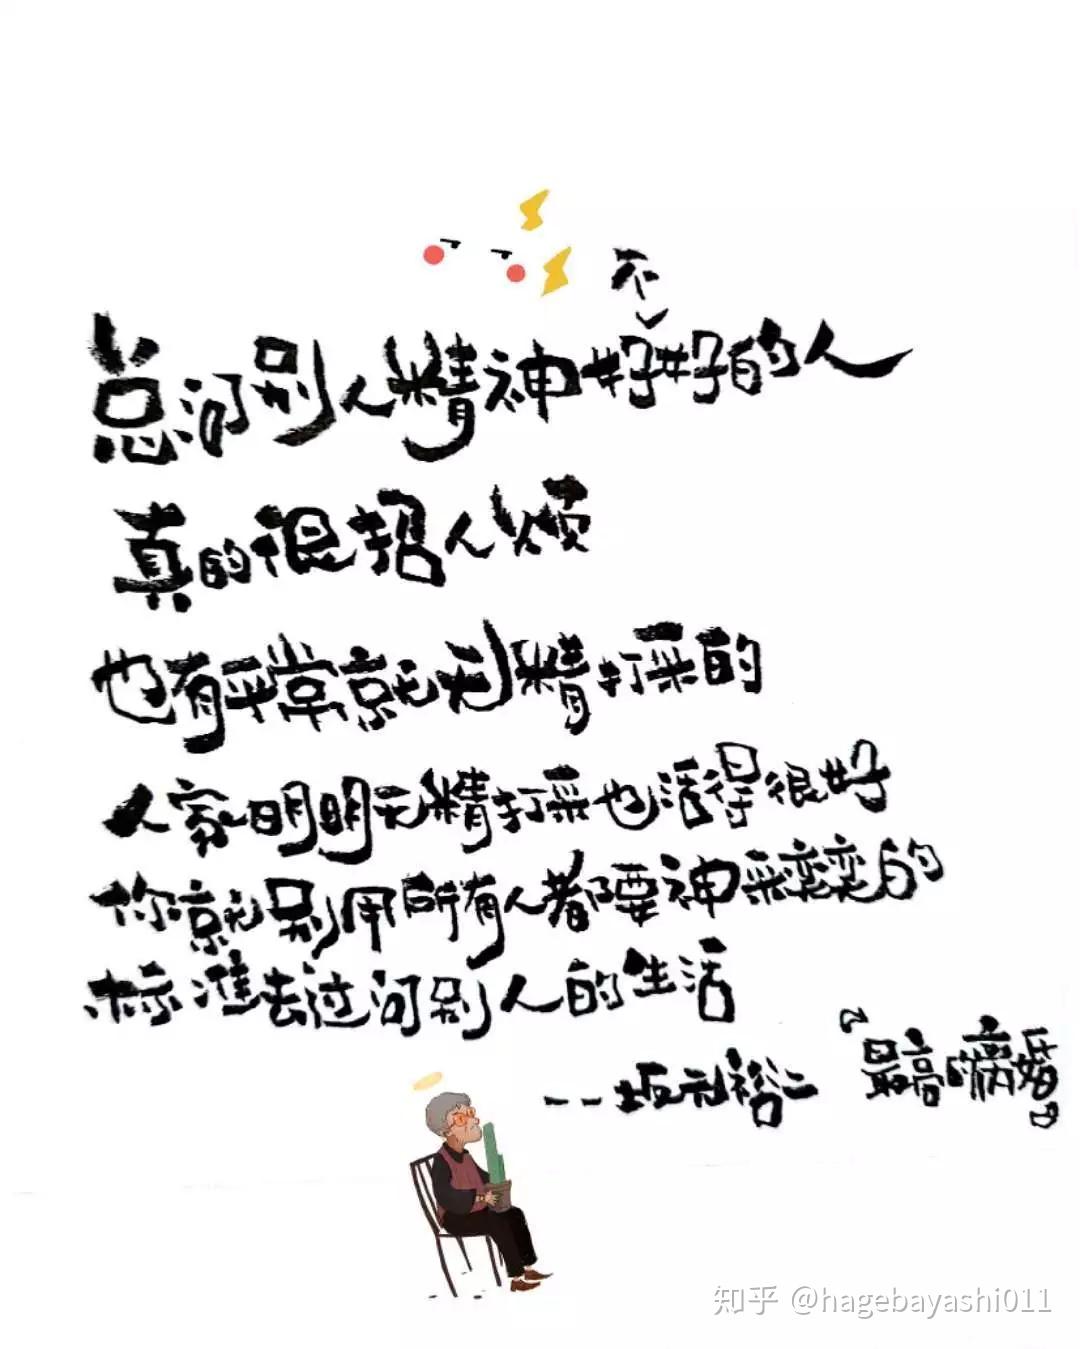 总问别人精神好不好的人
真的很招人烦
也有平常就无精打采的
人家明明无精打采也活得很好
你就别用所有人都要神采奕奕的
标准去过问别人的生活
——坂元裕二 『最高的离婚』
知乎 @hagebayashi011